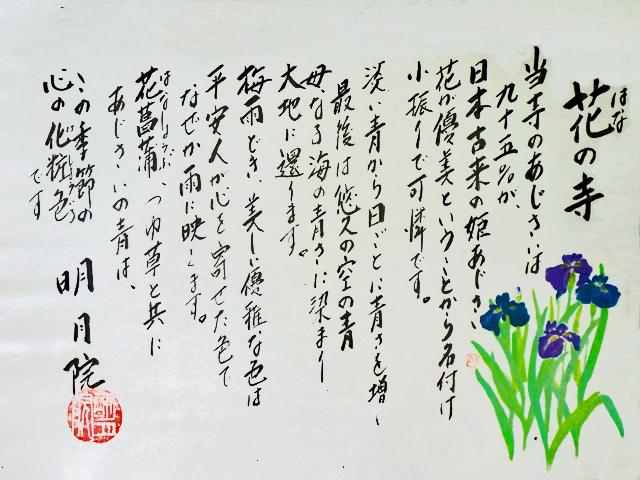 花の寺
はな
当寺のあじさいは
九十五%が
日本古来の姫あじさい
花が優美ということから名付け
小振りで可憐です。
淡い青から日ごとに青さを増し
最後は悠久の空の青
母なる海の青さに染まり
大地に還ります。
梅雨どき、美しい優雅な色は
平安人が心を寄せた色で
なぜか雨に映えます。
花菖蒲、つゆ草と共に
はなしょうぶ
あじさいの青は、
この季節の
心の化粧色です
明月院